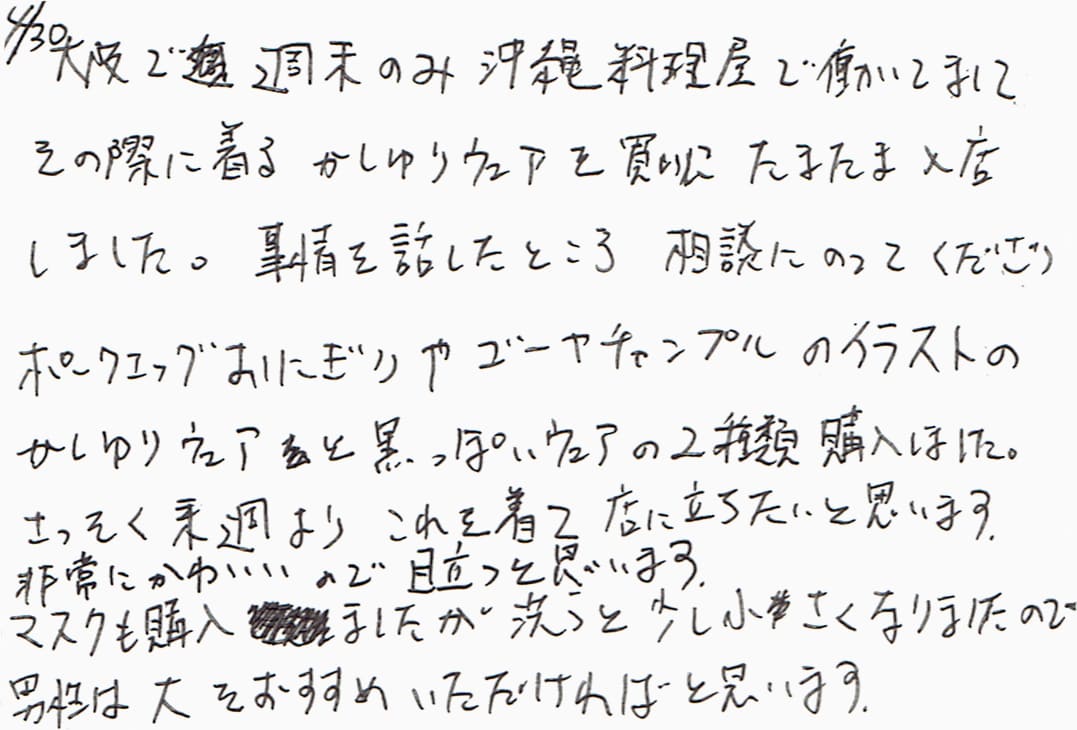 4/30
大阪で週末のみ沖縄料理屋で働いてまして
その際に着るかしゆりウェアを買いにたまたま入店
しました。事情を話したところ相談にのってくださり
ポークエッグおにぎりやゴーヤチャンプルのイラストの
かしゆりウェアと黒っぽいウェアの2種類購入しました。
さっそく来週よりこれを着て店に立ちたいと思います。
非常にかわいいので目立つと思います。
マスクも購入ましたが洗うと少し小さくなりましたので
男性は大をおすすめいただければと思います。